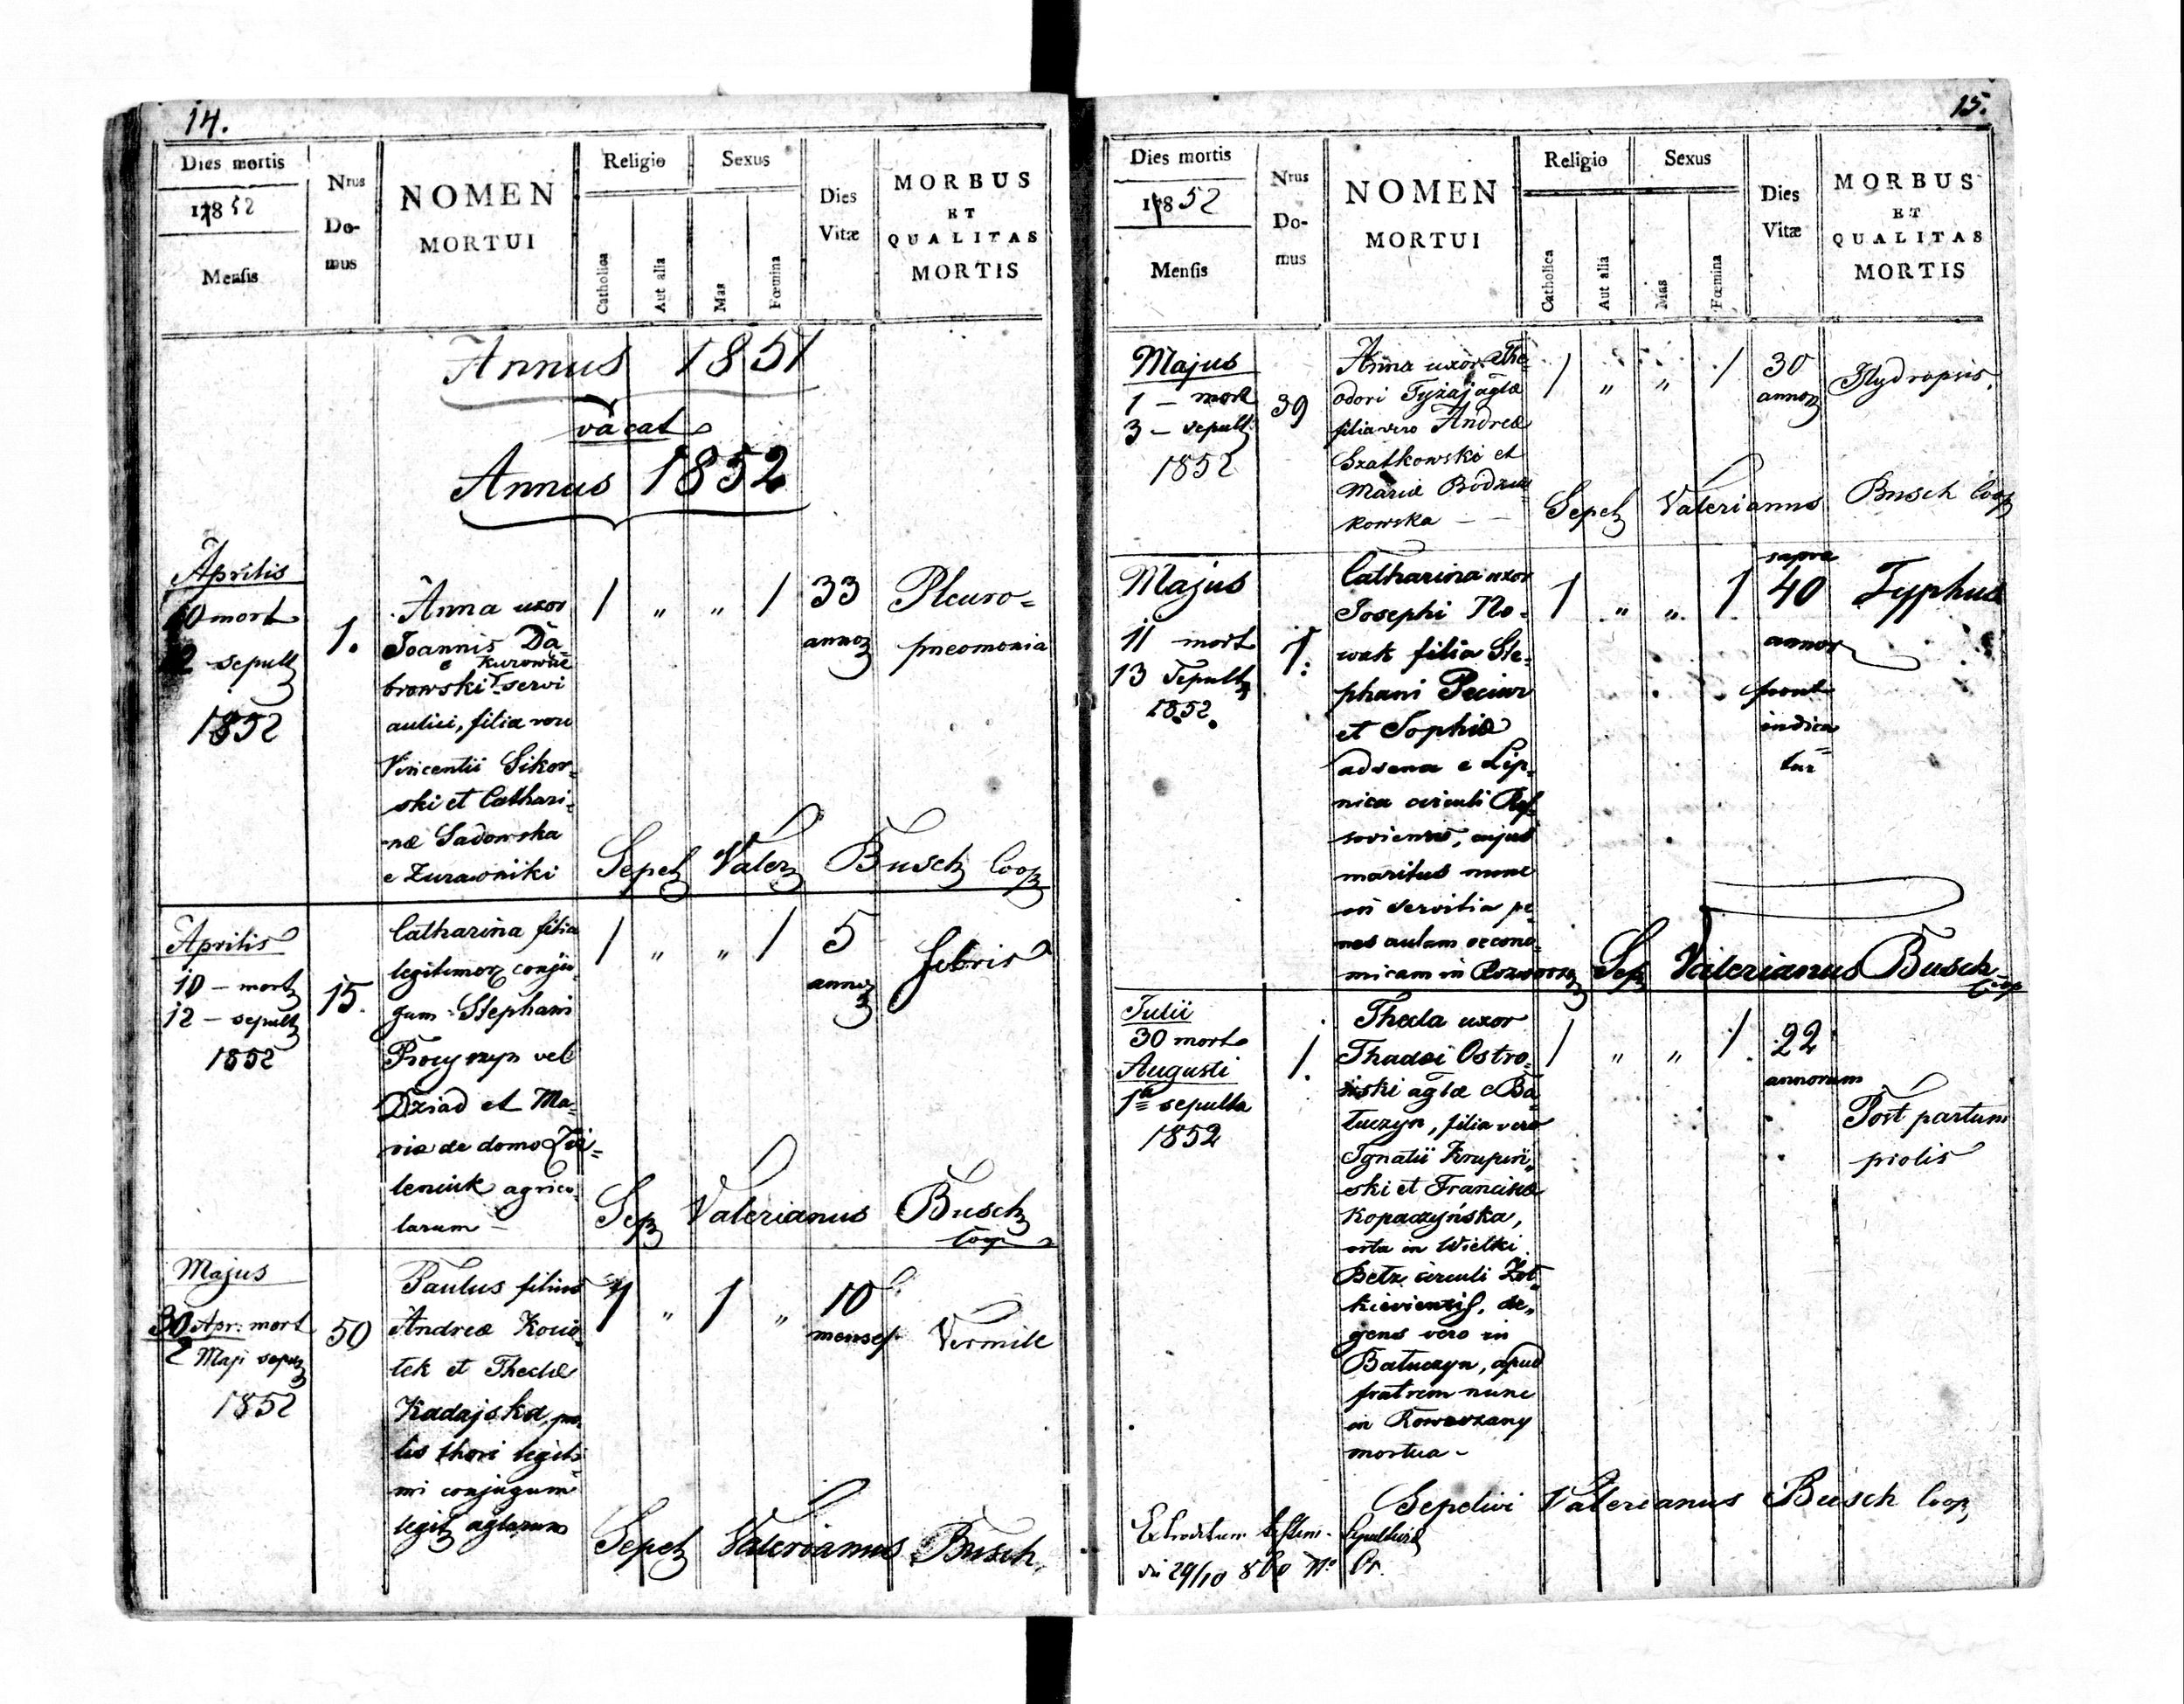 14.
Dies mortis
1852
Mensis
Nrus
Do-
mus
NOMEN
MORTUI
Religio
Catholica
Aut alia
Sexus
Mas
Fœmina
Dies
Vitæ
MORBUS
ET
QUALITAS
MORTIS
Annus 1851
vacat
Annus 1852
Aprilis
10 mort
12 sepult
1852
1.
Anna uxor
Joannis Dą-
e Kurowice
browski servi
aulici, filia vero
Vincentii Sikor-
ski et Cathari-
næ Sadowska
e Zurawniki
1 " " 1
33
annor
Pleuro=
pneomonia
Sepel Valer Busch Coop
Aprilis
10 – mort
12 – sepult
1852
15.
Catharina filia
legitimor conju-
gum Stephani
vel
Dziad et Ma-
riæ de domo
agrico-
larum –
1 " " 1
5
annor
febris
Sep Valerianus Busch
Coop
Majus
30 Apr: mort
2 Maji sepul
1852
50
Paulus filius
Andreæ
tek et Theclæ
Kadajska, pro-
les thori legiti-
mi conjugum
legit aglarum
1 " 1 "
10
menses
Vermile
Sepel Valerianus Busch.
15.
Dies mortis
1852
Mensis
Nrus
Do-
mus
NOMEN
MORTUI
Religio
Catholica
Aut alia
Sexus
Mas
Fœmina
Dies
Vitæ
MORBUS
ET
QUALITAS
MORTIS
Majus
1 – mort
3 – sepult
1852
39
Anna uxor The-
odori aglæ
filia vero Andreæ
Szatkowski et
Mariæ
kowska – –
1 " " 1
30
annor
Hydropsis.
Sepel Valerianus Busch Coop
Majus
11 mort
13 Sepult
1852.
7.
Catharina uxor
Josephi No-
wak filia Ste-
phani
et Sophiæ
advena e Lip-
nica circuli Res-
soviensis, cujus
maritus nunc
in servitia pe-
nes aulam oecono-
micam in
1 " " 1
supra
40
annor
prout
indica-
tur
Typhus
Sep Valerianus Busch
Coop
Julii
30 mort
Augusti
1a sepulta
1852
1.
Thecla uxor
Thadæi Ostro-
wski aglæ e Ba-
tuczyn, filia vero
Ignatii Krupiń-
ski et Franciscæ
Kopaczyńska,
orta in Wielki
Betz circuli Żół-
kieviensis, de-
gens vero in
Batuczyn, apud
fratrem nunc
in
mortua –
1 " " 1
22
annorum
Post partum
prolis
Sepelivi Valerianus Busch Coop
Extraditum testim. sepulturæ
die 29/10 860 No